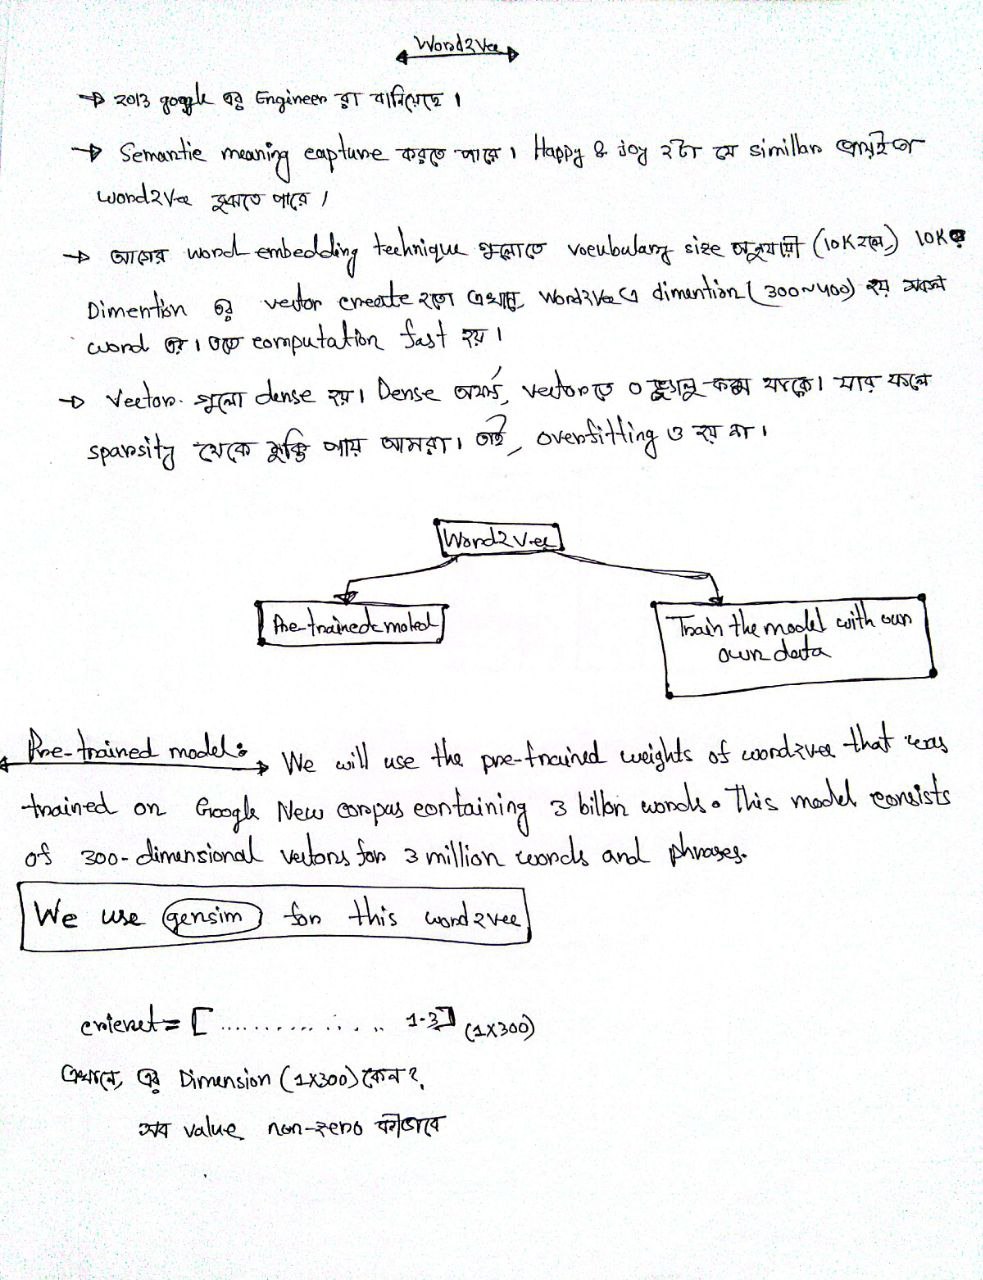 Word2Vec
→ 2013 google এর Engineer রা বানিয়েছে ।
→ Semantic meaning capture করতে পারে । Happy & Joy ২টা যে similar
word2Vec বুঝতে পারে ।
→ আগের word embedding technique গুলোতে vocubulary size অনুযায়ী (10K হলে,) 10K
Dimention এর vector create হতো এখানে, Word2Vec এ dimention (300~400) হয় সকল
word এর । তাই computation fast হয় ।
→ Vector গুলো dense হয় । Dense অর্থাৎ, vector তে 0 কম থাকে । যার ফলে
sparsity থেকে মুক্তি পায় আমরা । তাই, overfitting ও হয় না ।
Word2Vec
Pre-trained model
Train the model with our
own data
Pre-trained model: We will use the pre-trained weights of word2vec that was
trained on Google New corpus containing 3 billon words. This model consists
of 300-dimensional vectors for 3 million words and phrases.
We use gensim for this word2vec
cricket = [ .................. 1.3] (1x300)
এখানে, এর Dimension (1x300) কেন ?
সব value non-zero কীভাবে